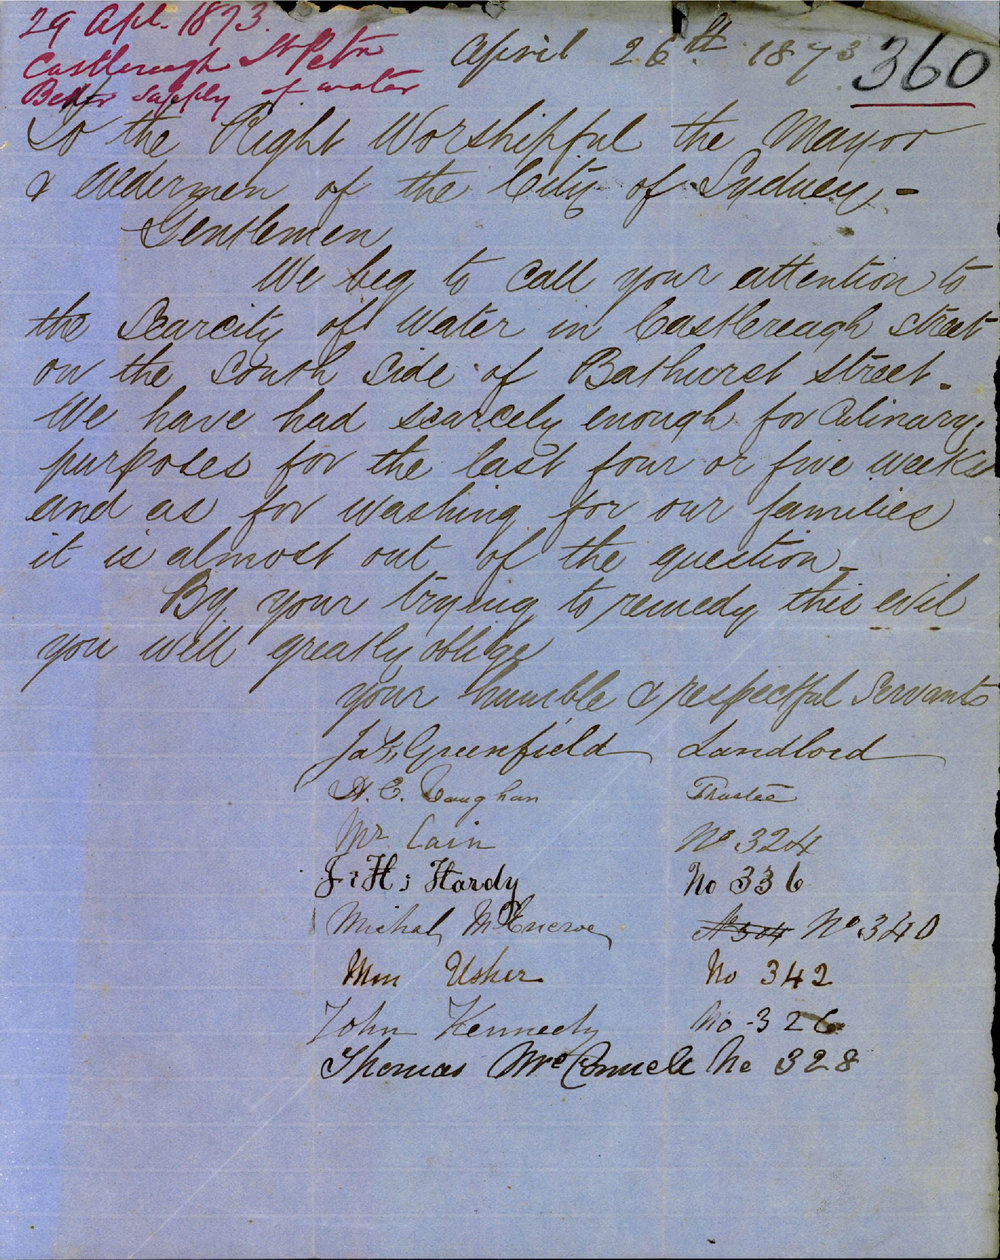 29 Apl. 1873.
Castlereagh St Petn
Better supply of water
April 26th. 1873
360
To the Right Worshipful the Mayor
& Aldermen of the City of Sydney -
Gentlemen
We beg to call your attention to
the Scarcity of Water in Castlereagh street
on the South Side of Bathurst street.
We have had scarcely enough for Culinary
purposes for the last four or five weeks
and as for washing for our families
it is almost out of the question
By your trying to remedy this evil
you will greatly oblige
your humble & respectful Servants
Greenfield Landlord
H. E. Vaughan Trustee
Mr Cain No 324
J; H; Hardy No 336
Michal McEncroe No 340
Usher No 342
John Kennedy No 326
Thomas No 328